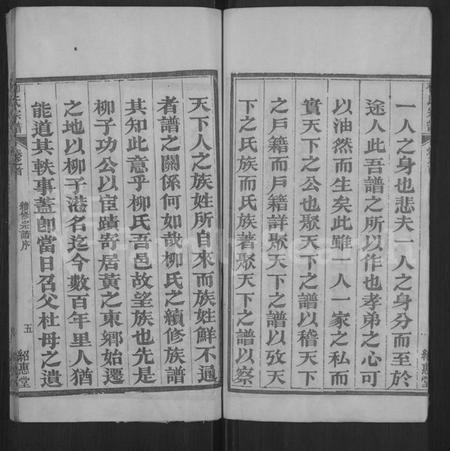 一人之身也悲夫一人之身分而至於
途人此吾譜之所以作也孝弟之心可
以油然而生矣此雖一人一家之私而
實天下之公也聚天下之譜以稽天下
之戶籍而戶籍詳聚天下之譜以攷天
下之氏族而氏族著聚天下之譜以察
紹惠堂
天下人之族姓所自來而族姓鮮不通
者譜之關係何如哉柳氏之續修族譜
其知此意乎柳氏吾邑故望族也先是
柳子功公以宦蹟寄居黃之東鄉始遷
之地以柳子港名迄今數百年里人猶
能道其軼事蓋卽當日召父杜母之遺
柳氏宗譜
卷首
續修宗譜序
五
紹惠堂